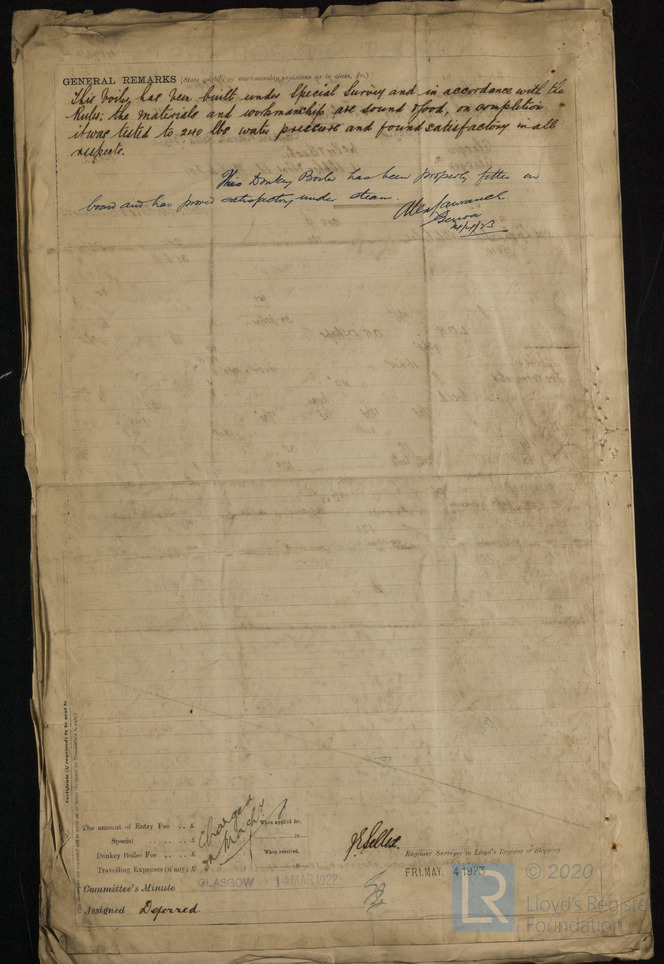 GENERAL REMARKS (State quality of workmanship, opinions as to class, &c.)
This boiler has been built under Special Survey and in accordance with the
Rules; the materials and workmanship are sound & good, on completion
it was tested to 240 lbs water pressure and found satisfactory in all
respects.
This Donkey Boiler has been properly fitted on
board and has proved satisfactory under steam.
Genoa
Certificate (if required) to be sent to
The amount of Entry Fee .. £
Special .. £
Donkey Boiler Fee .. £
Travelling Expenses (if any) £
Charged
on Mach?
When applied for,
When received,
J E Sellex.
Engineer Surveyor to Lloyd's Register of Shipping
Committee's Minute
GLASGOW 14 MAR 1922
FRI. MAY. 4 1923
Assigned Deferred
LR
© 2020
Lloyd's Register
Foundation